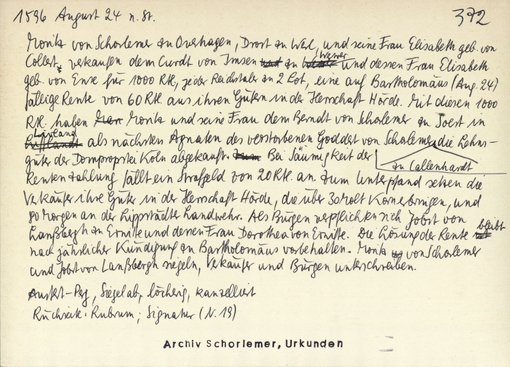 1596 August 24 n. St.
372
Monik von Schorlemer zu Overhagen, Drost zu Werl, und seine Frau Elisabeth geb. von
verkaufen dem Curdt von Imsen zu Wewer und dessen Frau Elisabeth
geb. von Ense für 1000 Rtl., jeder Reichstaler an 2 Lot, eine auf Bartholomäus (Aug. 24)
fällige Rente von 60 Rtl. aus ihren Gütern in der Herrschaft Hörde. Mit diesen 1000
Rtl. haben Monik und seine Frau dem Berndt von Schorlemer zu Soest in
als nächsten Agnaten des verstorbenen Goddert von Schorlemer die Lehns-
güter der Dompropstei Köln abgekauft. Bei Säumigkeit der
zu Callenhardt
Rentenzahlung fällt ein Strafgeld von 20 Rtl. an. Zum Unterpfand setzen die
Verkäufer ihre Güter in der Herrschaft Hörde, die über 30 Molt Korn erbringen, und
80 Morgen an der Lippstädter Landwehr. Als Bürgen verpflichten sich Jobst von
Lanßberg zu Erwitte und deren Frau Dorothea von Erwitte. Die Lösung der Rente bleibt
nach jährlicher Kündigung an Bartholomäus vorbehalten. Monik von Schorlemer
und Jobst von Lanßbergh siegeln, Verkäufer und Bürgen unterschreiben.
Ausf.-Perg., Siegel ab, löcherig, kanzelliert
Rückseite: Rubrum; Signatur (N. 19)
Archiv Schorlemer, Urkunden